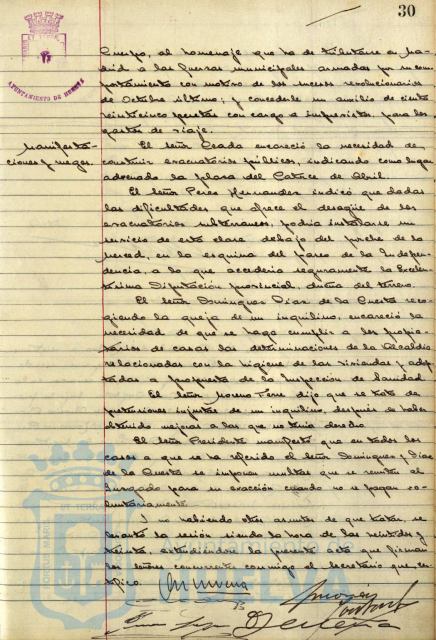 30
AYUNTAMIENTO DE HUELVA
Cuerpo, al homenaje que ha de tributarse en Ma-
drid a las fuerzas municipales armadas por su com-
portamiento con motivo de los sucesos revolucionarios
de Octubre último; y concederle un auxilio de ciento
veinticinco pesetas con cargo a imprevistos, para los
gastos de viaje.
Manifesta-
ciones y ruegos.
El señor Ceada encareció la necesidad de
construir evacuatorios públicos, indicando como lugar
adecuado la plaza del Catorce de Abril.
El señor Perez Hernandez indicó que dadas
las dificultades que ofrece el desagüe de los
evacuatorios subterraneos, podría instalarse un
servicio de esta clase debajo del porche de la
Merced, en la esquina del paseo de la Indepen-
dencia, a lo que accedería seguramente la Excelen-
tísima Diputación provincial, dueña del terreno.
El señor Dominguez Diaz de la Cuesta reco-
giendo la queja de un inquilino, encareció la
necesidad de que se haga cumplir a los propie-
tarios de casas las determinaciones de la Alcaldía
relacionadas con la higiene de las viviendas y adop-
tadas a propuesta de la Inspección de Sanidad
El señor Moreno Ferre dijo que se trata de
pretensiones injustas de un inquilino, después de haber
obtenido mejoras a las que no tenía derecho.
El señor Presidente manifestó que en todos los
casos a que se ha referido el señor Dominguez y Diaz
de la Cuesta se imponen multas que se remiten al
Juzgado para su exacción cuando no se pagan vo-
luntariamente.
Y no habiendo otros asuntos de que tratar, se
levantó la sesión siendo la hora de las veintidos y
treinta, extendiéndose la presente acta que firman
los señores concurrentes conmigo el Secretario que, cer-
tifico.